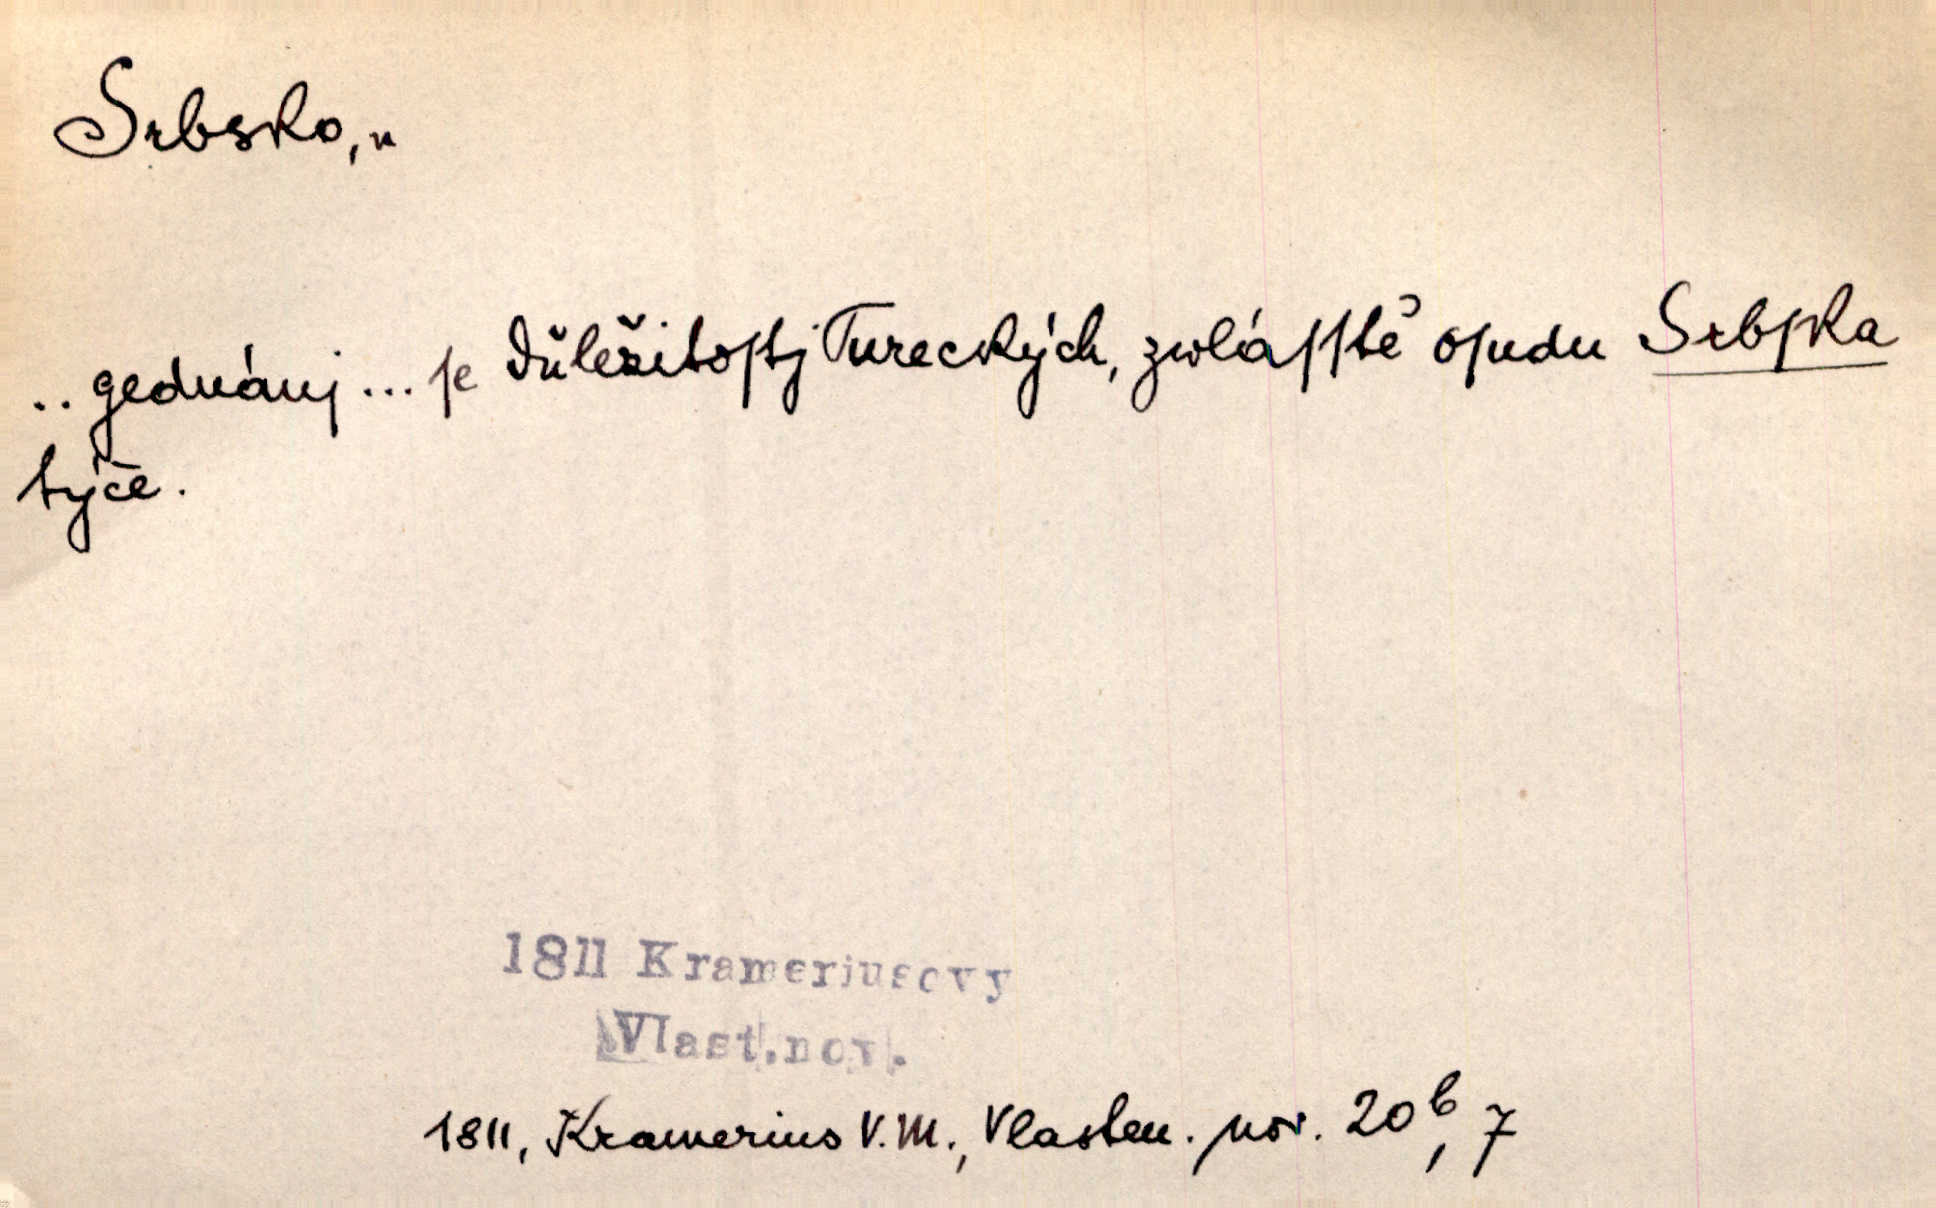 Srbsko, n
.. gednánj ... ſe důležitoſtj Tureckých, zwláſſtě oſudu Srbſka
týče.
1811 Kramerjusovy
Vlast.nov.
1811, Kramerius V.M., Vlasten. nov. 20b, 7